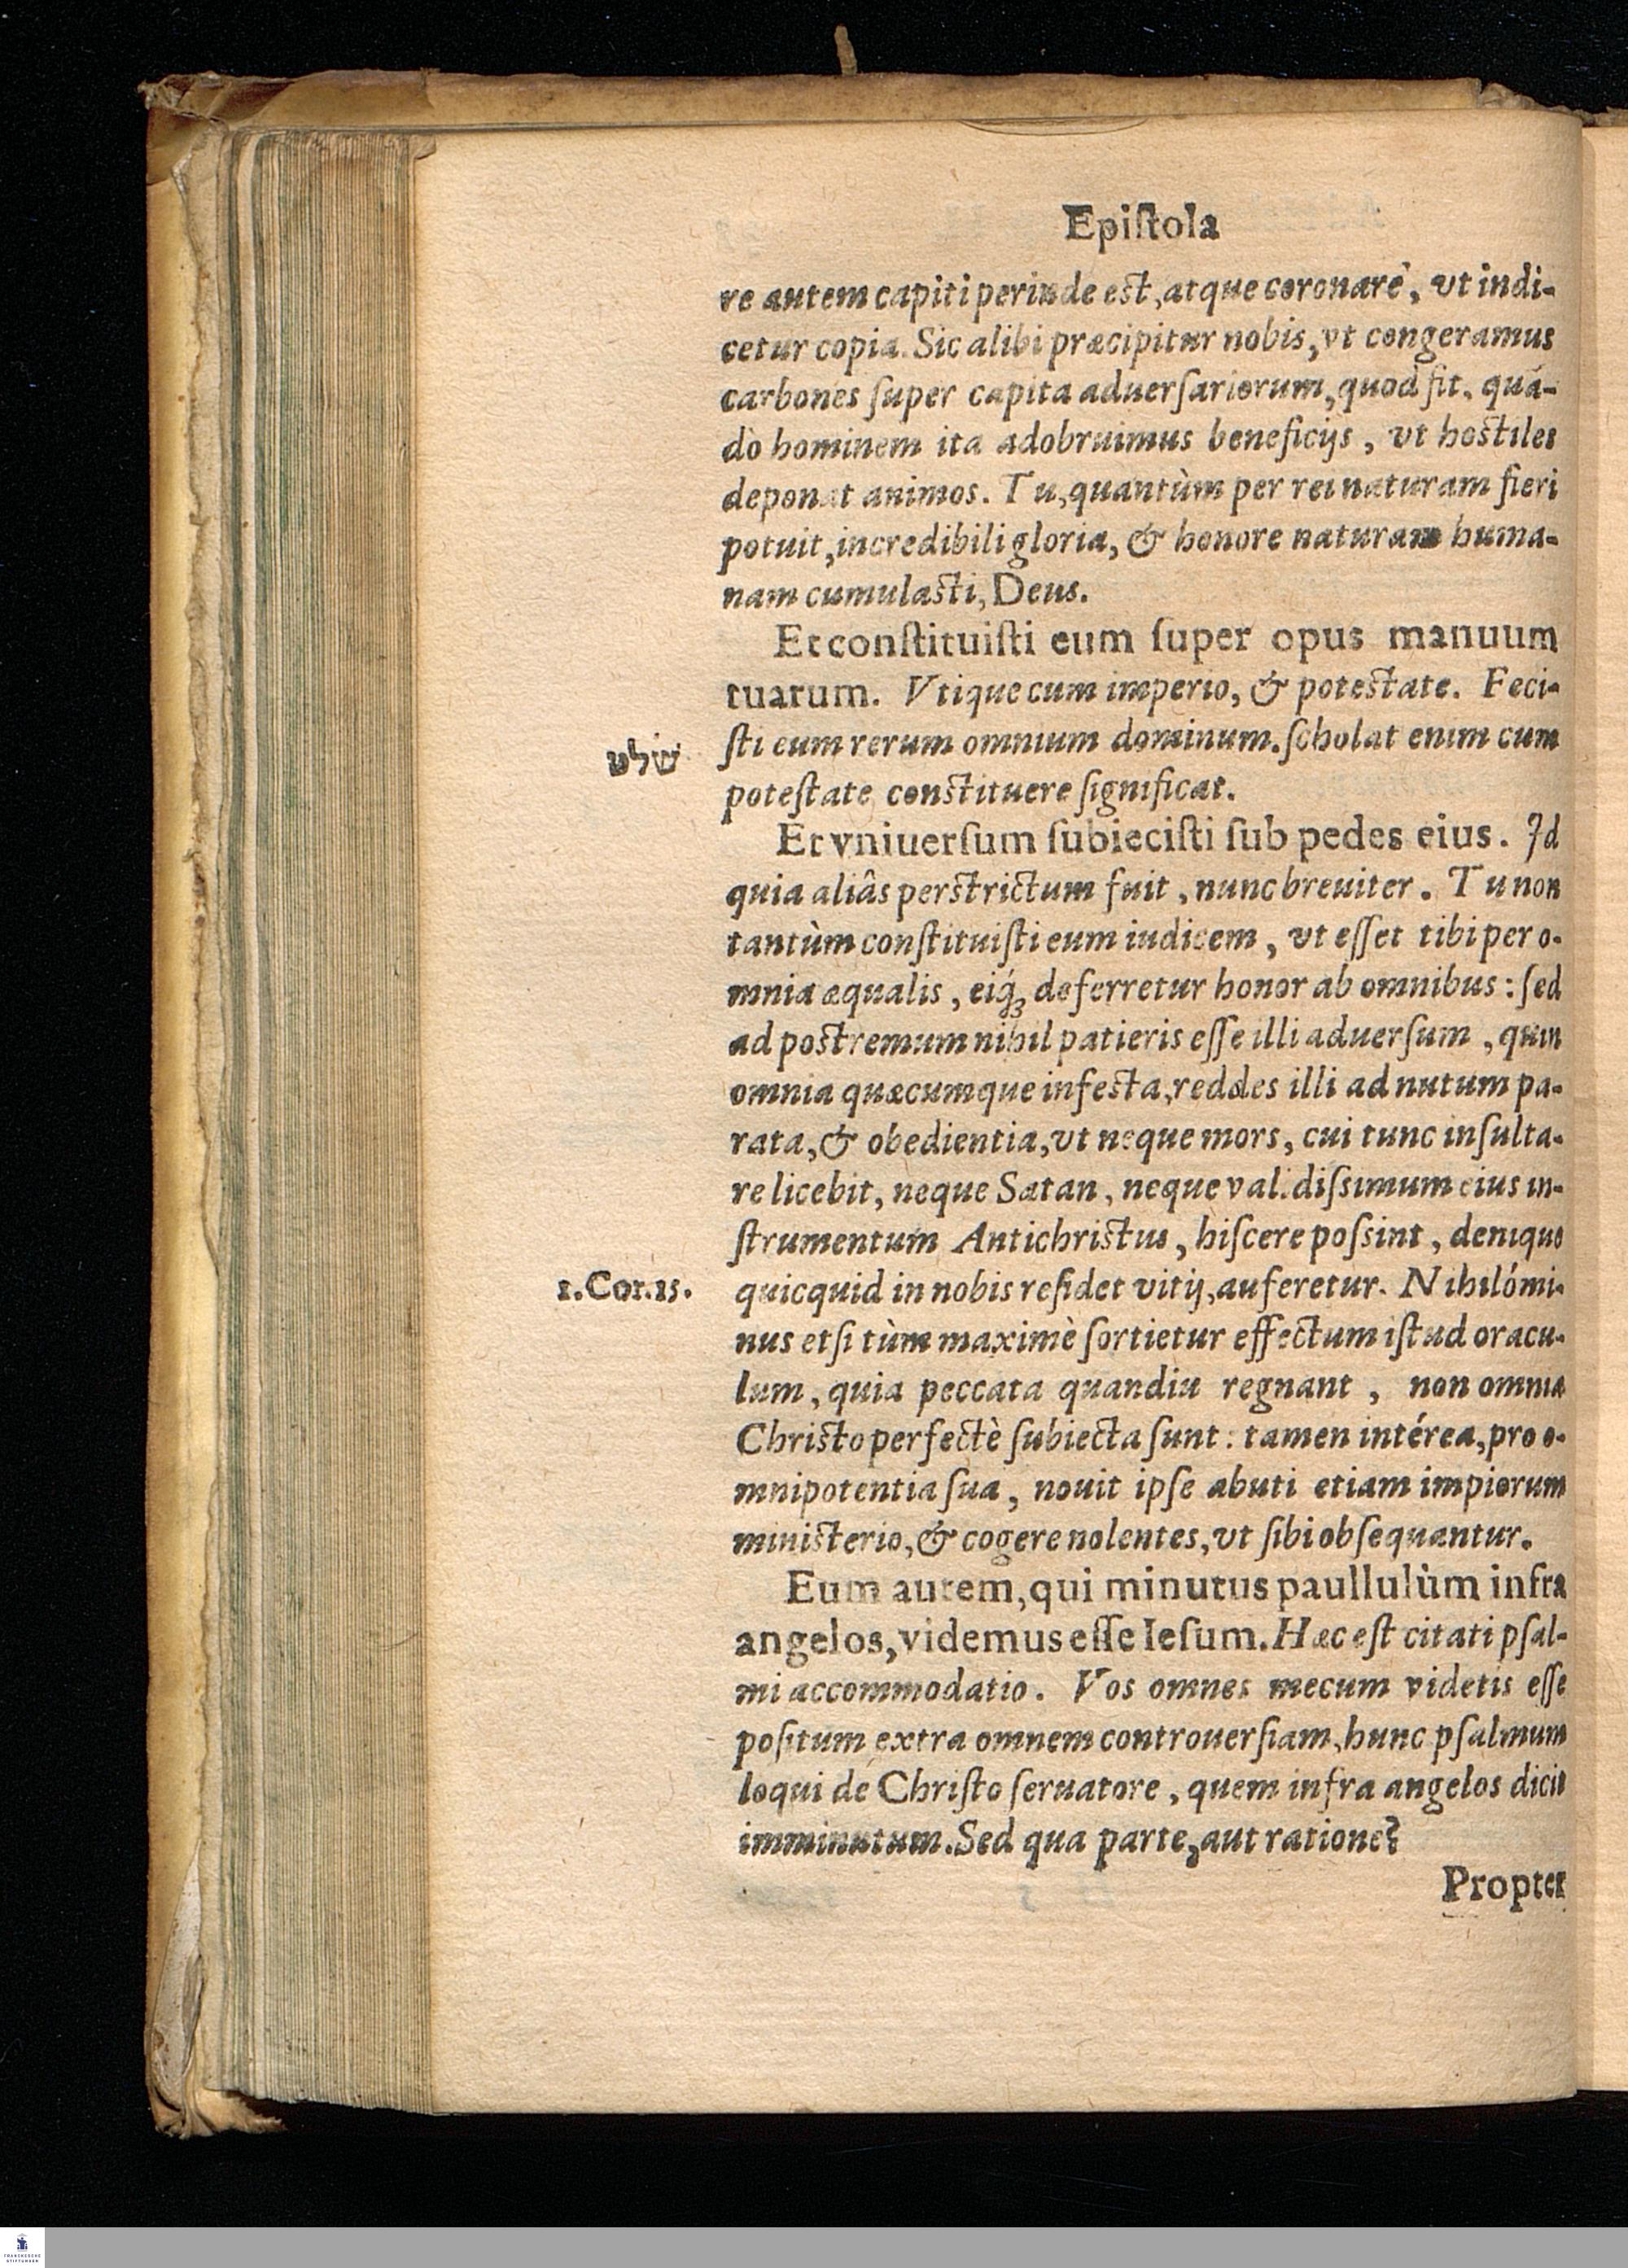 Epiſtola
re autem capiti perinde est, atque coronare, vt indi-
cetur copia. Sic alibi præcipitur nobis, vt congeramus
carbones ſuper capita aduerſariorum, quod fit, quá-
dò hominem ita adobruimus beneficijs, vt hostiles
deponat animos. Tu, quantùm per rei naturam fieri
potuit, incredibili gloria, & honore naturam huma-
nam cumulasti, Deus.
Et conſtituiſti eum ſuper opus manuum
tuarum. Vtique cum imperio, & potestate. Feci-
שׁלט
ſti eum rerum omnium dominum. ſcholat enim cum
poteſtate constituere ſignificat.
Et vniuerſum ſubieciſti ſub pedes eius. Id
quia aliâs perstrictum fuit, nunc breuiter. Tu non
tantùm conſtituiſti eum iudicem, vt eſſet tibi per o-
mnia æqualis, eiq́ꝫ deferretur honor ab omnibus: ſed
ad postremum nihil patieris eſſe illi aduerſum, quin
omnia quæcumque infeſta, reddes illi ad nutum pa-
rata, & obedientia, vt neque mors, cui tunc inſulta-
re licebit, neque Satan, neque validiſsimum eius in-
ſtrumentum Antichristus, hiſcere poſsint, denique
1. Cor. 15.
quicquid in nobis reſidet vitij, auferetur. Nihilómi-
nus etſi tùm maximè ſortietur effectum iſtud oracu-
lum, quia peccata quandiu regnant, non omnia
Christo perfectè ſubiecta ſunt: tamen intérea, pro o-
mnipotentia ſua, nouit ipſe abuti etiam impiorum
ministerio, & cogere nolentes, vt ſibi obſequantur.
Eum autem, qui minutus paullulùm infra
angelos, videmus eſſe Ieſum. Hæc eſt citati pſal-
mi accommodatio. Vos omnes mecum videtis eſſe
poſitum extra omnem controuerſiam, hunc pſalmum
loqui de Chriſto ſeruatore, quem infra angelos dicit
imminutum. Sed qua parte, aut ratione?
Propter
FRANCKESCHE
STIFTUNGEN